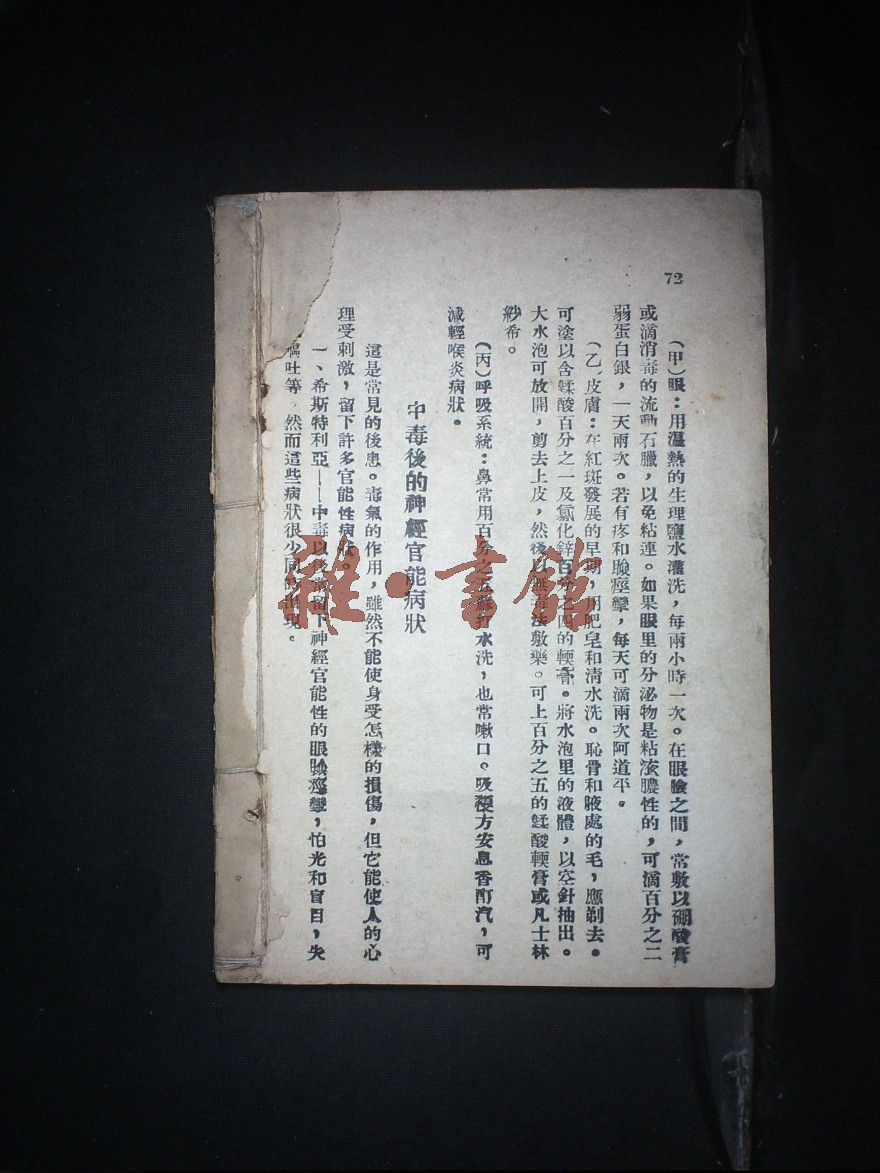 72
(甲)眼：用温熱的生理鹽水灌洗，每兩小時一次。在眼瞼之間，常敷以硼酸膏
或滴消毒的流動石臘，以免粘連。如果眼里的分泌物是粘液膿性的，可滴百分之二
弱蛋白銀，一天兩次。若有疼和瞼痙攣，每天可滴兩次阿道平。
(乙)皮膚：在紅斑發展的早期，用肥皂和清水洗。恥骨和腋處的毛，應剃去。
可塗以含鞣酸百分之一及氯化鋅百分之四的輭膏。將水泡里的液體，以空針抽出。
大水泡可放開，剪去上皮，然後以無毒法敷藥。可上百分之五的鞣酸輭膏或凡士林
紗希。
(丙)呼吸系統：鼻常用百分之五蘇打水洗，也常嗽口。吸複方安息香酊汽，可
減輕喉炎病狀。
中毒後的神經官能病狀
這是常見的後患。毒氣的作用，雖然不能使身受怎樣的損傷，但它能使人的心
理受刺激，留下許多官能性病狀。
一、希斯特利亞——中毒以後常留下神經官能性的眼瞼痙攣，怕光和盲目，失
嘔吐等。然而這些病狀很少同時出現。
雅·書館